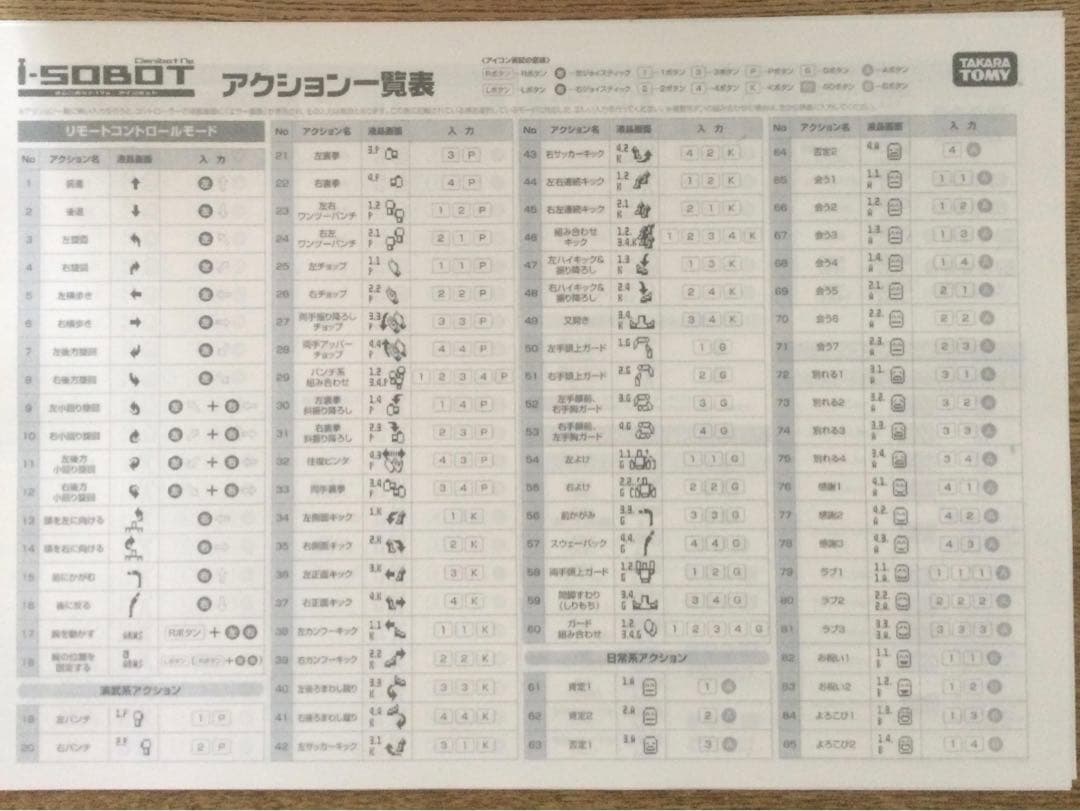 i-SOBOT
アクション一覧表
TAKARA TOMY
リモートコントロールモード
No アクション名 液晶画面 入力
1 前進
2 後退
3 左旋回
4 右旋回
5 左横歩き
6 右横歩き
7 左後方旋回
8 右後方旋回
9 左小回り旋回 +
10 右小回り旋回 +
11 左後方小回り旋回 +
12 右後方小回り旋回 +
13 頭を左に向ける
14 頭を右に向ける
15 前にかがむ
16 後に反る
17 腕を動かす ARMS Rボタン +
18 腕の位置を固定する ARMS
演武系アクション
19 左パンチ 1.P 1 P
20 右パンチ 2.P 2 P
No アクション名 液晶画面 入力
21 左裏拳 3.P 3 P
22 右裏拳 4.P 4 P
23 左右ワンツーパンチ 1.2.P 1 2 P
24 右左ワンツーパンチ 2.1.P 2 1 P
25 左チョップ 1.1.P 1 1 P
26 右チョップ 2.2.P 2 2 P
27 両手振り降ろしチョップ 3.3.P 3 3 P
28 両手アッパーチョップ 4.4.P 4 4 P
29 パンチ系組み合わせ 1.2.3.4.P 1 2 3 4 P
30 左裏拳斜振り降ろし 1.4.P 1 4 P
31 右裏拳斜振り降ろし 2.3.P 2 3 P
32 往復ビンタ 4.3.P 4 3 P
33 両手裏拳 3.4.P 3 4 P
34 左側面キック 1.K 1 K
35 右側面キック 2.K 2 K
36 左正面キック 3.K 3 K
37 右正面キック 4.K 4 K
38 左カンフーキック 1.1.K 1 1 K
39 右カンフーキック 2.2.K 2 2 K
40 左後ろまわし蹴り 3.3.K 3 3 K
41 右後ろまわし蹴り 4.4.K 4 4 K
42 左サッカーキック 3.1.K 3 1 K
No アクション名 液晶画面 入力
43 右サッカーキック 4.2.K 4 2 K
44 左右連続キック 1.2.K 1 2 K
45 右左連続キック 2.1.K 2 1 K
46 組み合わせキック 1.2.3.4.K 1 2 3 4 K
47 左ハイキック&振り降ろし 1.3.K 1 3 K
48 右ハイキック&振り降ろし 2.4.K 2 4 K
49 又開き 3.4.K 3 4 K
50 左手頭上ガード 1.G 1 G
51 右手頭上ガード 2.G 2 G
52 左手顔前、右手胸ガード 3.G 3 G
53 右手顔前、左手胸ガード 4.G 4 G
54 左よけ 1.1.G 1 1 G
55 右よけ 2.2.G 2 2 G
56 前かがみ 3.3.G 3 3 G
57 スウェーバック 4.4.G 4 4 G
58 両手頭上ガード 1.2.G 1 2 G
59 開脚すわり(しりもち) 3.4.G 3 4 G
60 ガード組み合わせ 1.2.3.4.G 1 2 3 4 G
日常系アクション
61 肯定1 1.A 1 A
62 肯定2 2.A 2 A
63 否定1 3.A 3 A
No アクション名 液晶画面 入力
64 否定2 4.A 4 A
65 会う1 1.1.A 1 1 A
66 会う2 1.2.A 1 2 A
67 会う3 1.3.A 1 3 A
68 会う4 1.4.A 1 4 A
69 会う5 2.1.A 2 1 A
70 会う6 2.2.A 2 2 A
71 会う7 2.3.A 2 3 A
72 別れる1 3.1.A 3 1 A
73 別れる2 3.2.A 3 2 A
74 別れる3 3.3.A 3 3 A
75 別れる4 3.4.A 3 4 A
76 感謝1 4.1.A 4 1 A
77 感謝2 4.2.A 4 2 A
78 感謝3 4.3.A 4 3 A
79 ラブ1 1.1.1.A 1 1 1 A
80 ラブ2 2.2.2.A 2 2 2 A
81 ラブ3 3.3.3.A 3 3 3 A
82 お祝い1 1.1.B 1 1 B
83 お祝い2 1.2.B 1 2 B
84 よろこび1 1.3.B 1 3 B
85 よろこび2 1.4.B 1 4 B